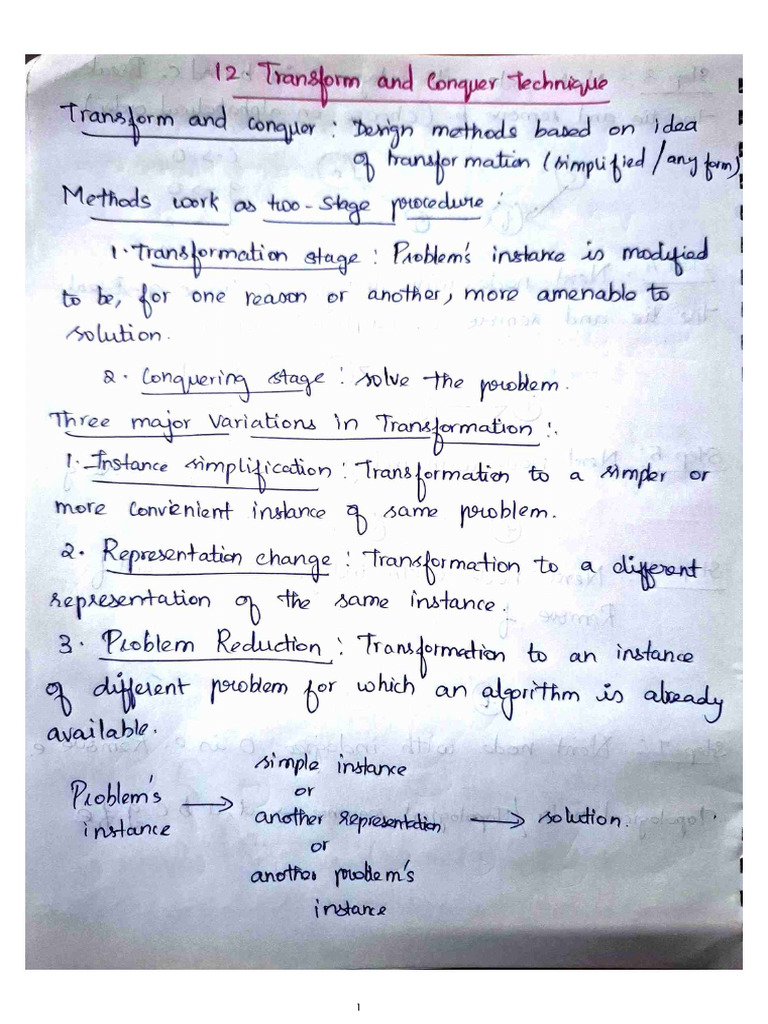 12. Transform and Conquer Technique
Transform and conquer : Design methods based on idea
of transformation (simplified / any form)
Methods work as two-stage procedure :
1. Transformation stage : Problem's instance is modified
to be, for one reason or another, more amenable to
solution.
2. Conquering stage : solve the problem.
Three major Variations in Transformation :
1. Instance simplification : Transformation to a simpler or
more convienient instance of same problem.
2. Representation change : Transformation to a different
representation of the same instance.
3. Problem Reduction : Transformation to an instance
of different problem for which an algorithm is already
available.
Problem's instance → simple instance or another representation or another problem's instance → solution.
1